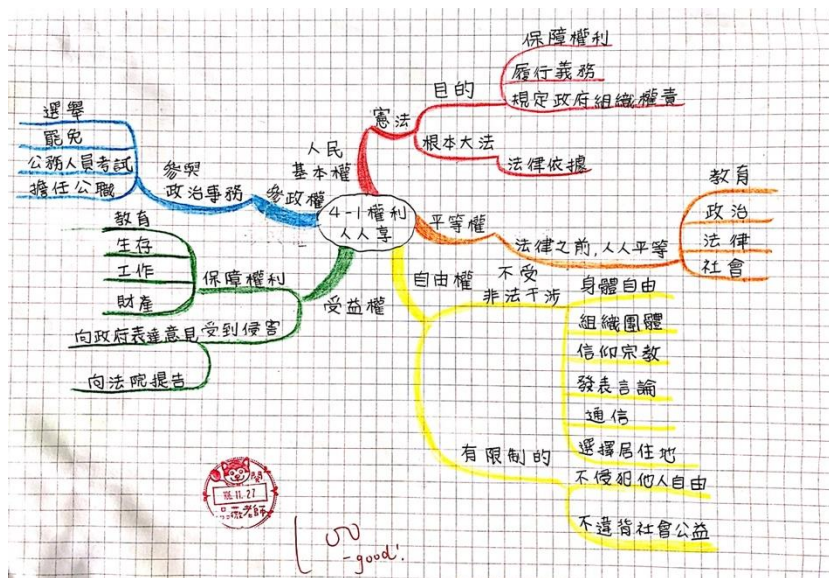 4-1權利
人人享
人民
基本權
憲法
目的
保障權利
履行義務
規定政府組織權責
根本大法
法律依據
平等權
法律之前,人人平等
教育
政治
法律
社會
自由權
不受
非法干涉
身體自由
組織團體
信仰宗教
發表言論
通信
選擇居住地
有限制的
不侵犯他人自由
不違背社會公益
受益權
保障權利
教育
生存
工作
財產
受到侵害
向政府表達意見
向法院提告
參政權
參與
政治事務
選舉
罷免
公務人員考試
擔任公職
閱
11.27
老師
100
-good!